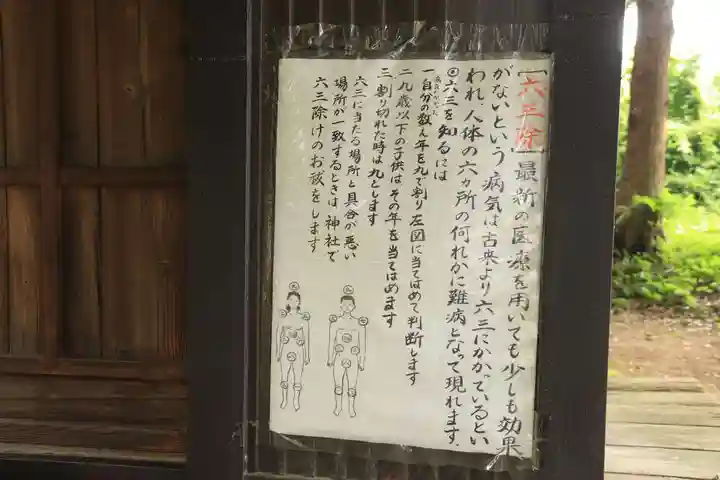 【六三除】最新の医療を用いても少しも効果
がないという病気は古来より六三にかかっているとい
われ、人体の六ヵ所の何れかに難病となって現れます。
◎六三を知るには
一 自分の数え年を九で割り左図に当てはめて判断します
二 九歳以下の子供はその年を当てはめます
三 割り切れた時は九とします
六三に当たる場所と具合が悪い
場所が一致するときは神社で
六三除けのお祓をします